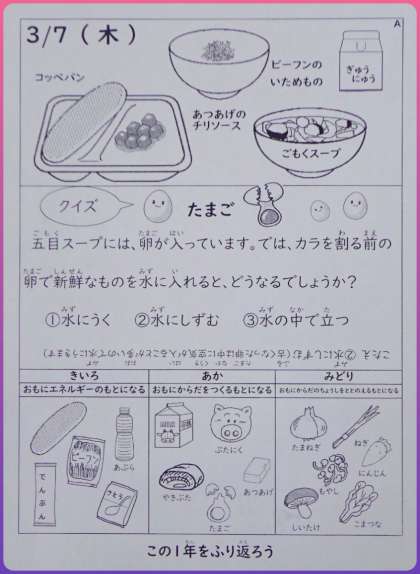 A
3/7（木）
コッペパン
ビーフンの
いためもの
ぎゅう
にゅう
あつあげの
チリソース
ごもくスープ
クイズ
たまご
五目スープには、卵が入っています。では、カラを割る前の
卵で新鮮なものを水に入れると、どうなるでしょうか？
①水にうく ②水にしずむ ③水の中で立つ
こたえ ②水にしずむ（古くなった卵は中に空気が入ることが多いので水にうきます）
きいろ
あか
みどり
おもにエネルギーのもとになる
おもにからだをつくるもとになる
おもにからだのちょうしをととのえるもとになる
あぶら
ビーフン
でんぷん
さとう
ぶたにく
やきぶた
あつあげ
たまご
たまねぎ
ねぎ
にんじん
もやし
しいたけ
こまつな
この１年をふり返ろう